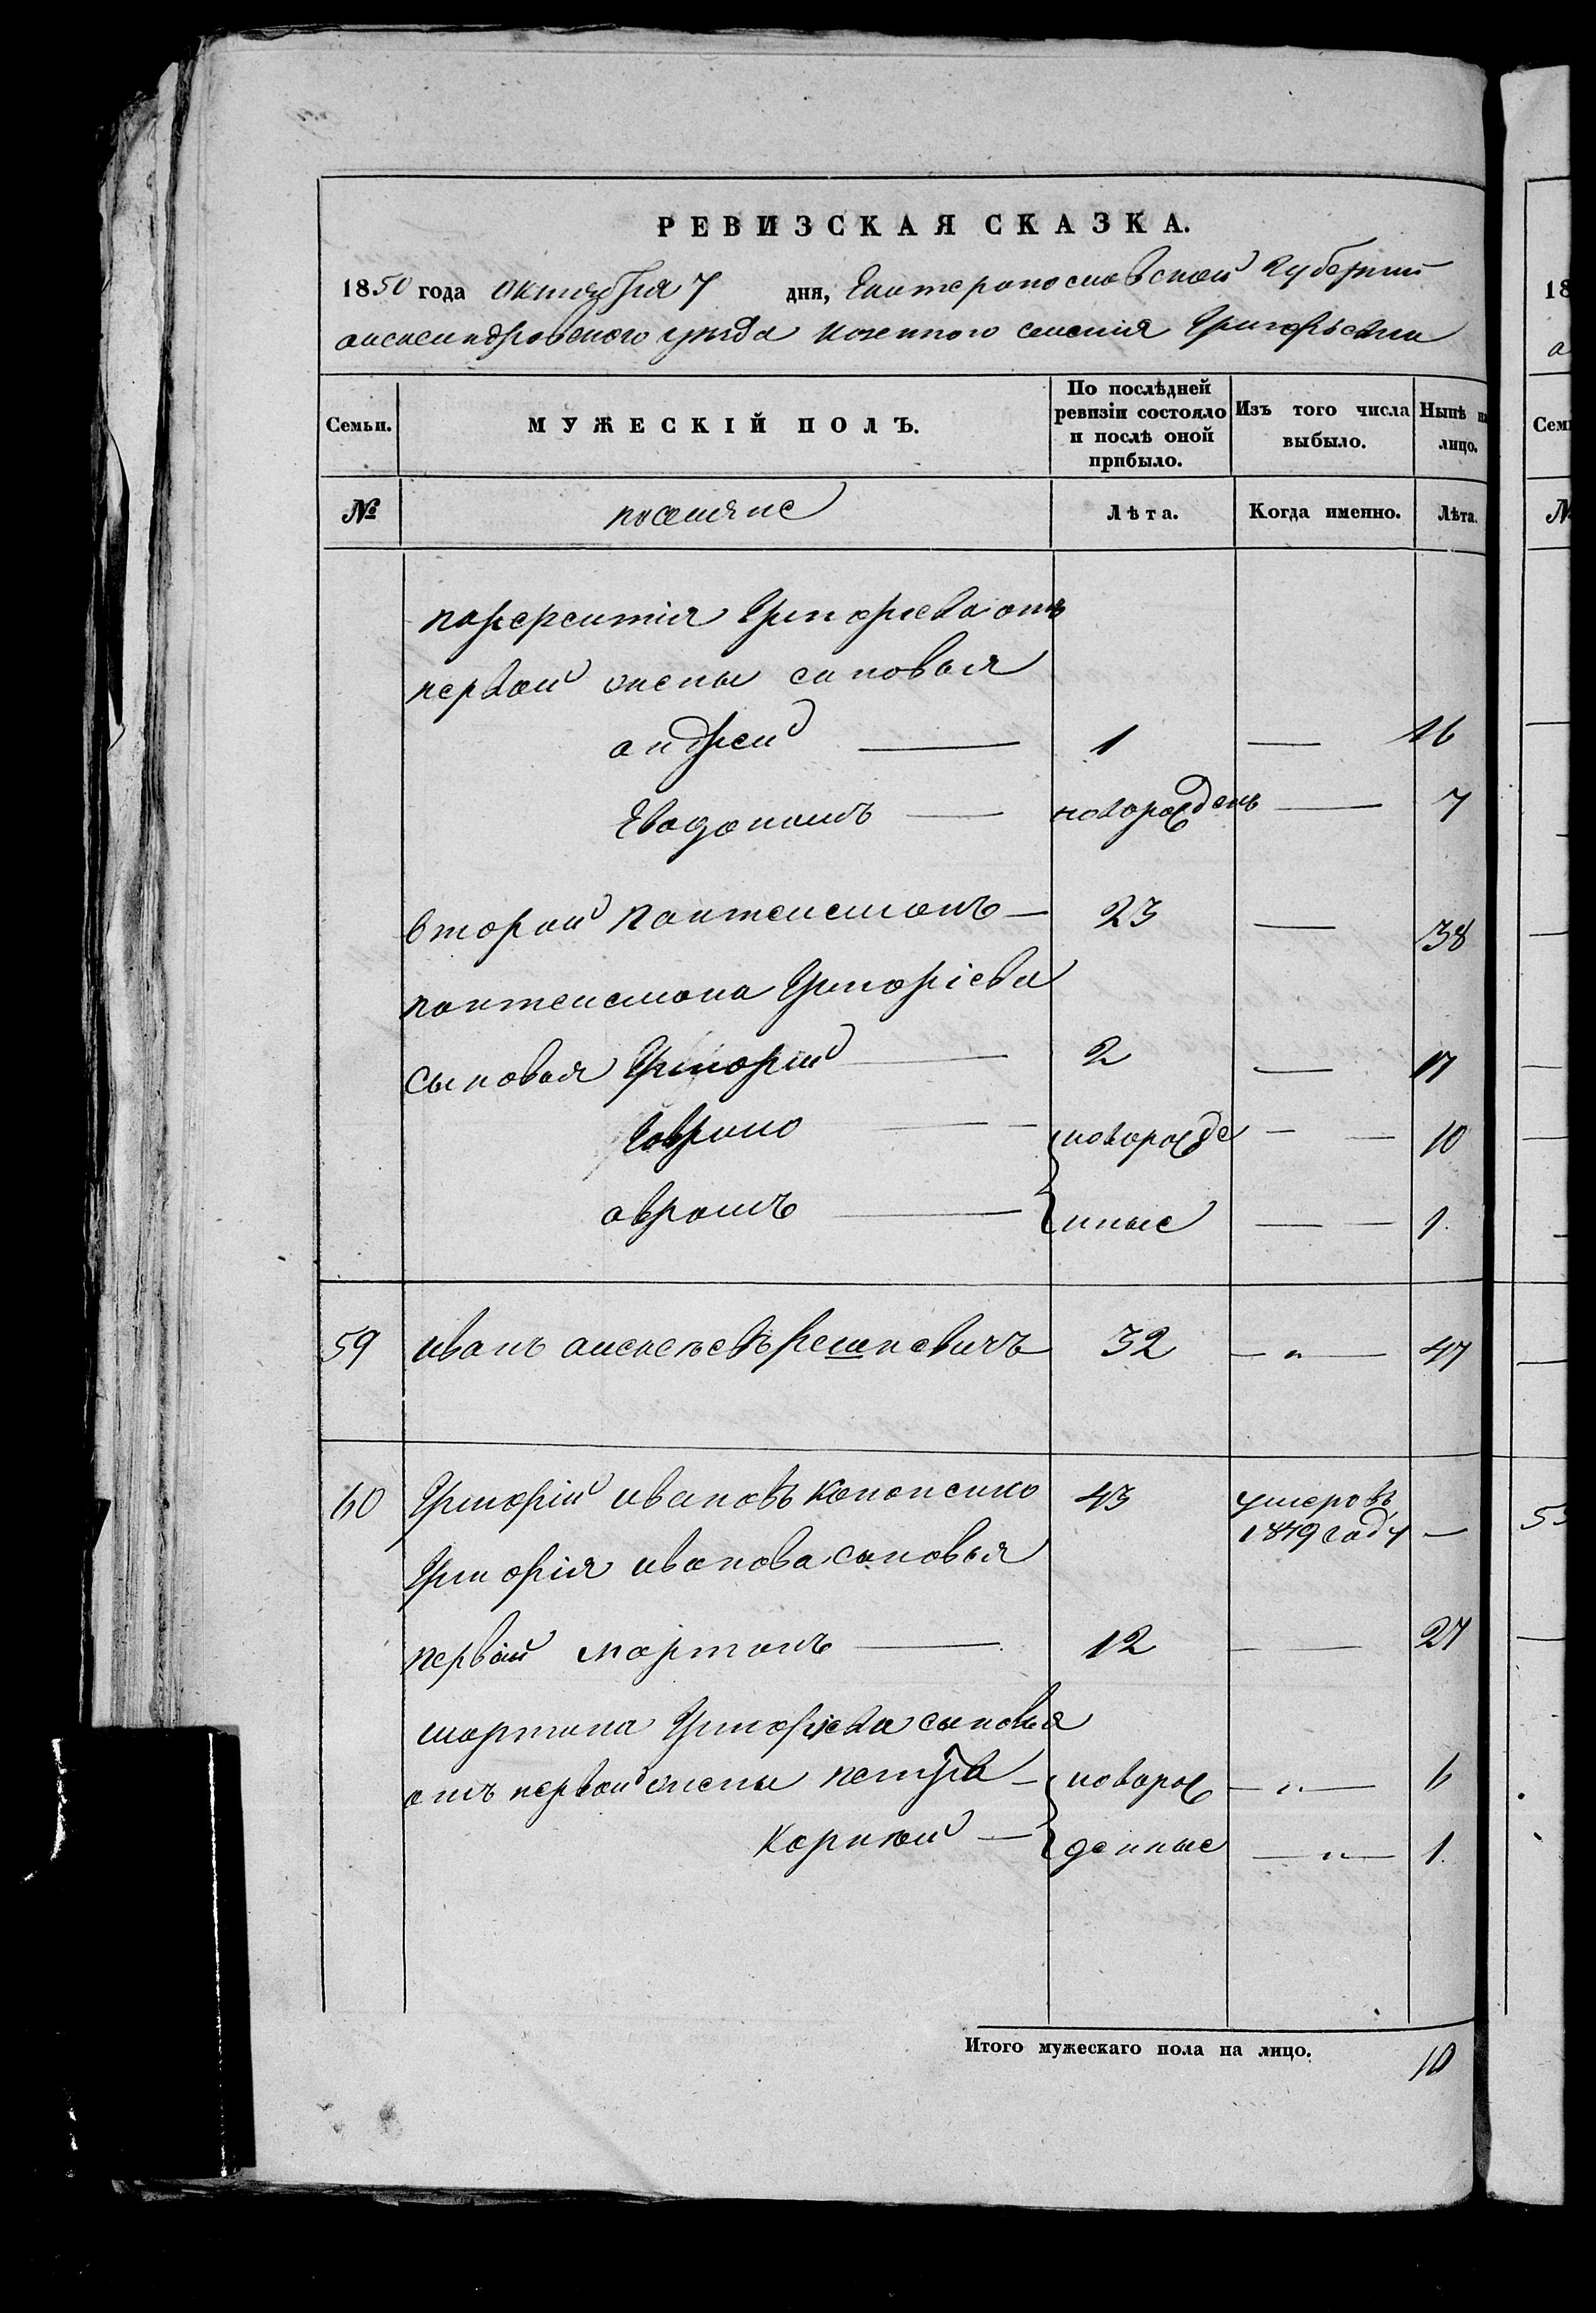 РЕВИЗСКАЯ СКАЗКА.
1850 года октября 7 дня, Екатеринославской Губернии
александровского уезда казенного селения Григорьевки
Семьи. МУЖЕСКІЙ ПОЛЪ. По послѣдней ревизіи состояло и послѣ оной прибыло. Изъ того числа выбыло. Нынѣ на лицо.
№ поселяне Лѣта. Когда именно. Лѣта.
Григориева отъ
первой жены сыновья
андрей 1 — 16
Евдокимъ новорожденъ — 7
второй пантелемонъ — 23 — 38
пантелемона Григоріева
сыновья Григорий 2 — 17
Гаврило новорожде — 10
аврамъ нные — 1
59 иванъ алексеевъ Решневичъ 32 — 47
60 Григорій ивановъ Кононенко 43 умеръ въ
1849 году —
Григорія иванова сыновья
первый мартинъ 12 — 27
мартина Григориева сыновья
отъ первой жены петръ — новорож — 6
Корнѣй — денные — 1
Итого мужескаго пола на лицо. 10
18
а
Сем
№